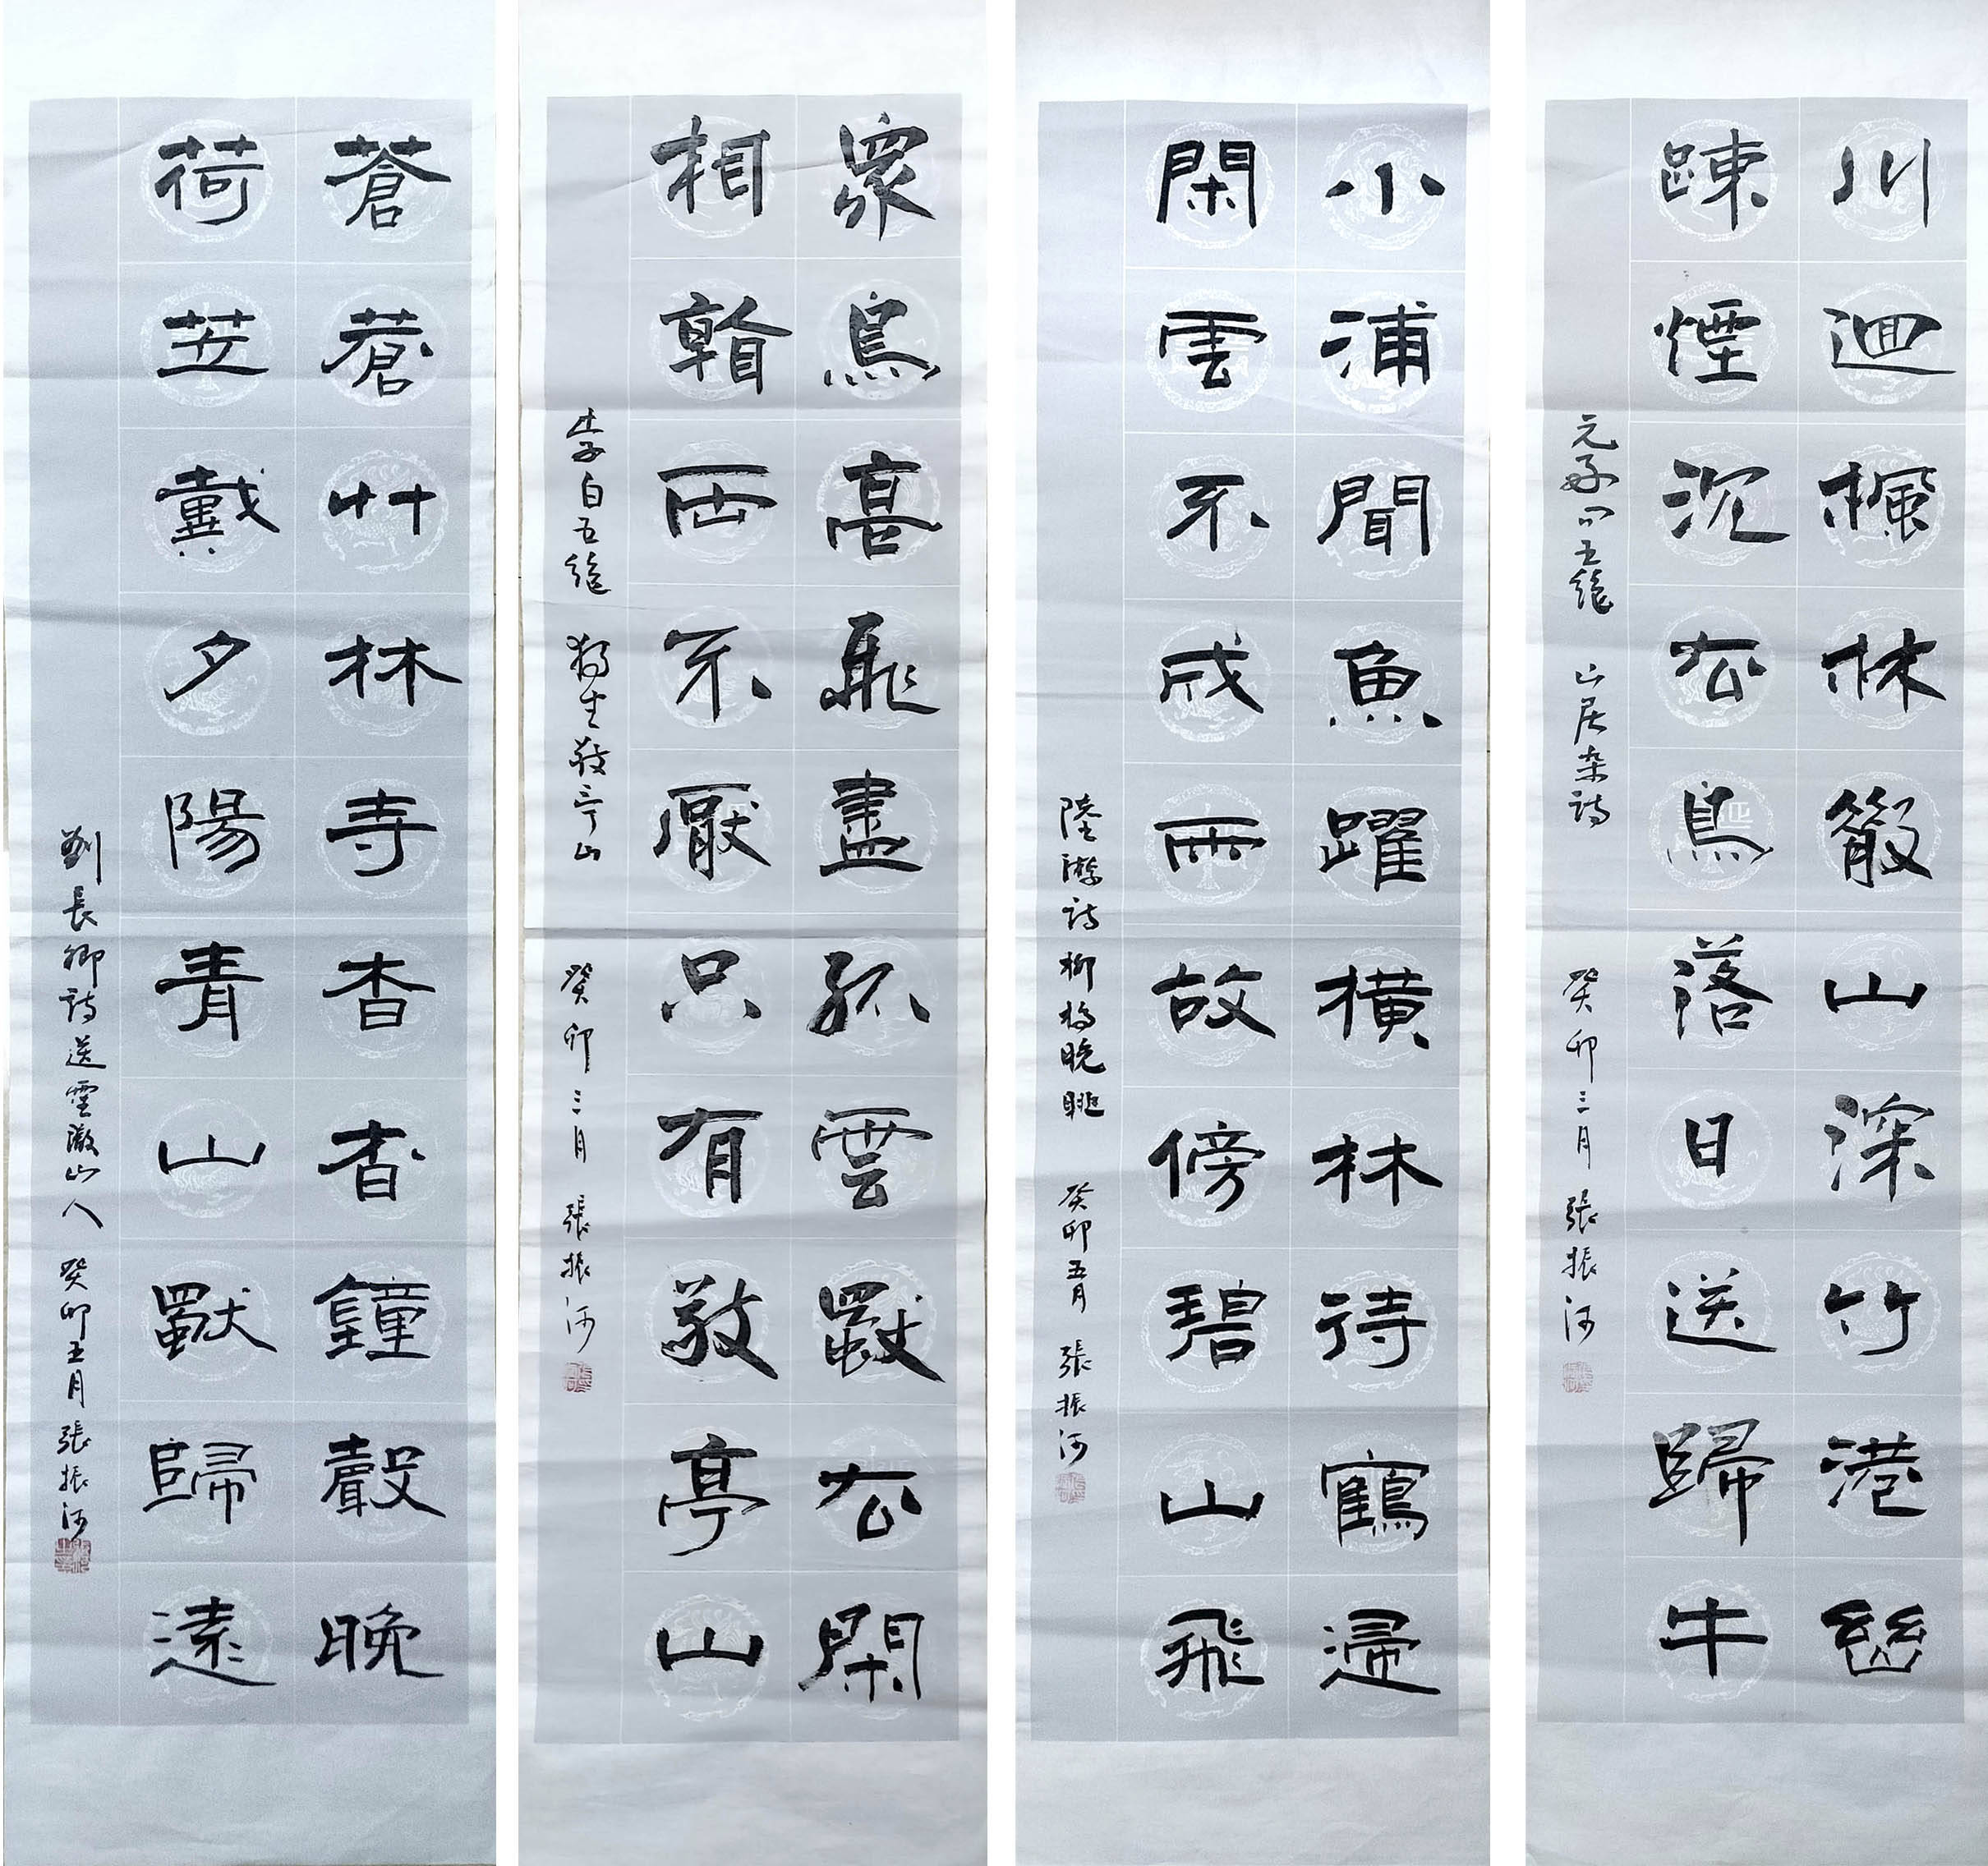 川迴楓林散山深竹港幽
疎煙沉去鳥落日送歸牛
元好问五絕 山居杂詩 癸卯三月 張振河
小浦聞魚躍橫林待鶴歸
閑雲不成雨故傍碧山飛
陸游詩柳橋晚眺 癸卯五月 張振河
眾鳥高飛盡孤雲獨去閑
相看兩不厭只有敬亭山
李白五絕 獨坐敬亭山 癸卯三月 張振河
蒼蒼竹林寺杳杳鐘聲晚
荷笠戴夕陽青山獨歸遠
劉長卿詩送靈澈山人 癸卯五月 張振河